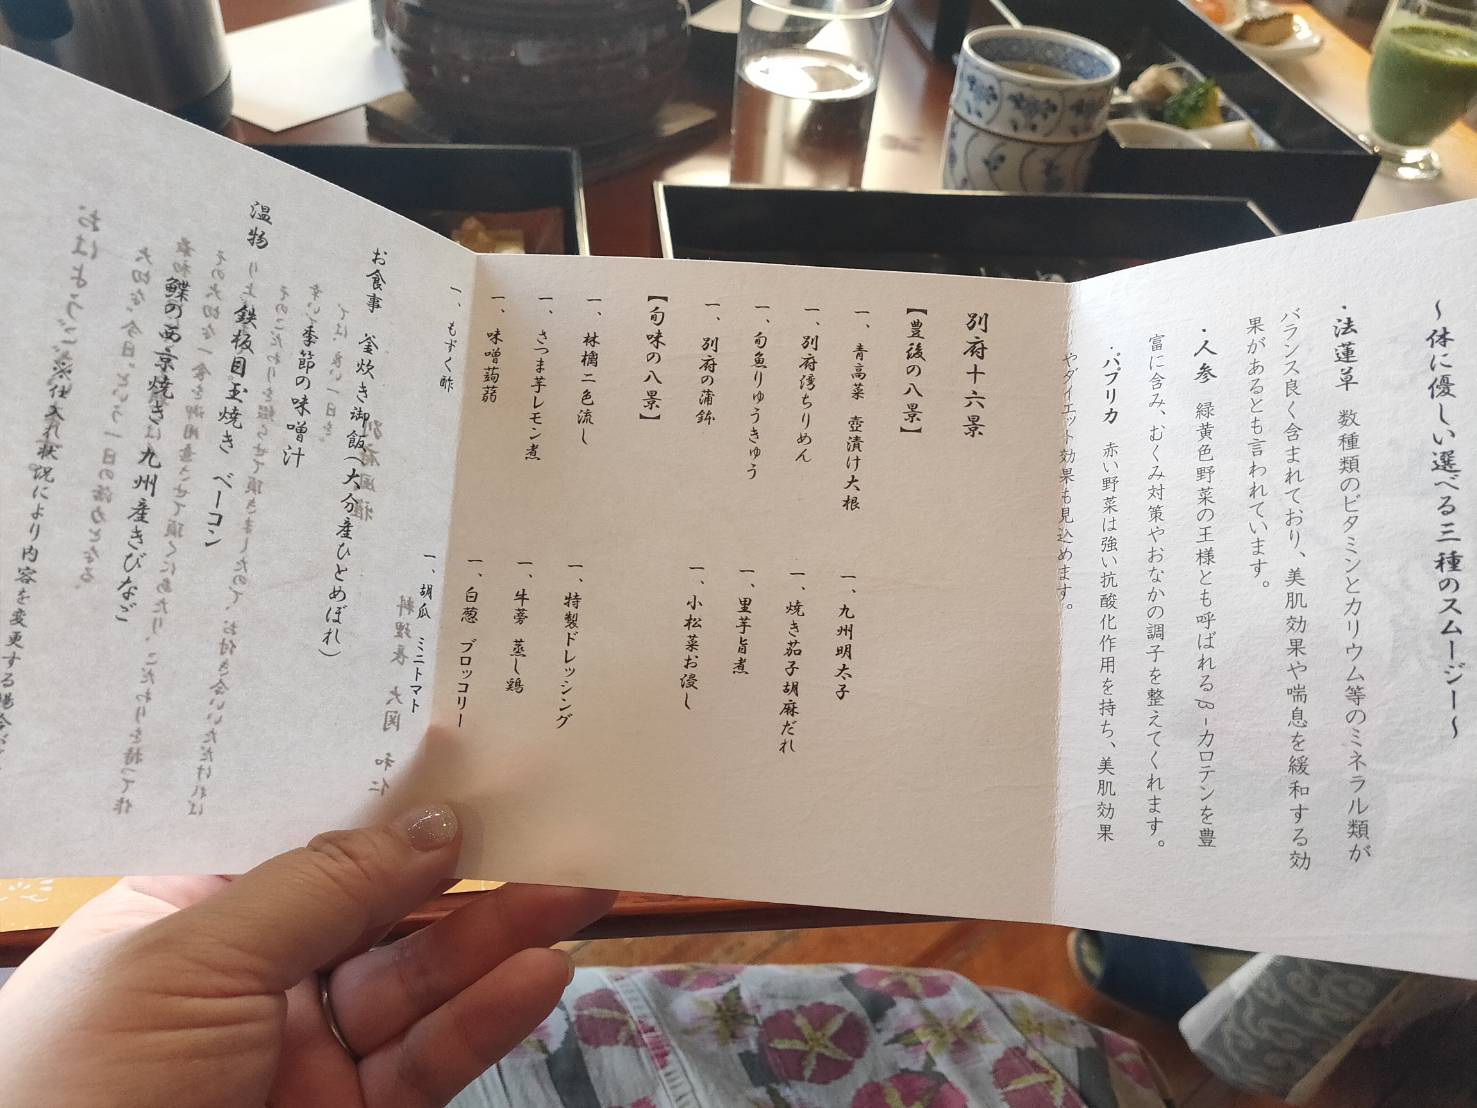 ～体に優しい選べる三種のスムージー～
・法蓮草　数種類のビタミンとカリウム等のミネラル類が
バランス良く含まれており、美肌効果や喘息を緩和する効
果があるとも言われています。
・人参　緑黄色野菜の王様とも呼ばれるβ－カロテンを豊
富に含み、むくみ対策やおなかの調子を整えてくれます。
・パプリカ　赤い野菜は強い抗酸化作用を持ち、美肌効果
やダイエット効果も見込めます。
別府十六景
【豊後の八景】
一、青高菜　壺漬け大根
一、別府湾ちりめん
一、旬魚りゅうきゅう
一、別府の蒲鉾
一、九州明太子
一、焼き茄子胡麻だれ
一、里芋旨煮
一、小松菜お浸し
【旬味の八景】
一、林檎二色流し
一、さつま芋レモン煮
一、味噌蒟蒻
一、もずく酢
一、特製ドレッシング
一、牛蒡　蒸し鶏
一、白葱　ブロッコリー
一、胡瓜　ミニトマト
お食事　釜炊き御飯（大分産ひとめぼれ）
季節の味噌汁
温物　鉄板目玉焼き　ベーコン
鰈の西京焼き　九州産きびなご
※仕入れ状況により内容を変更する場合